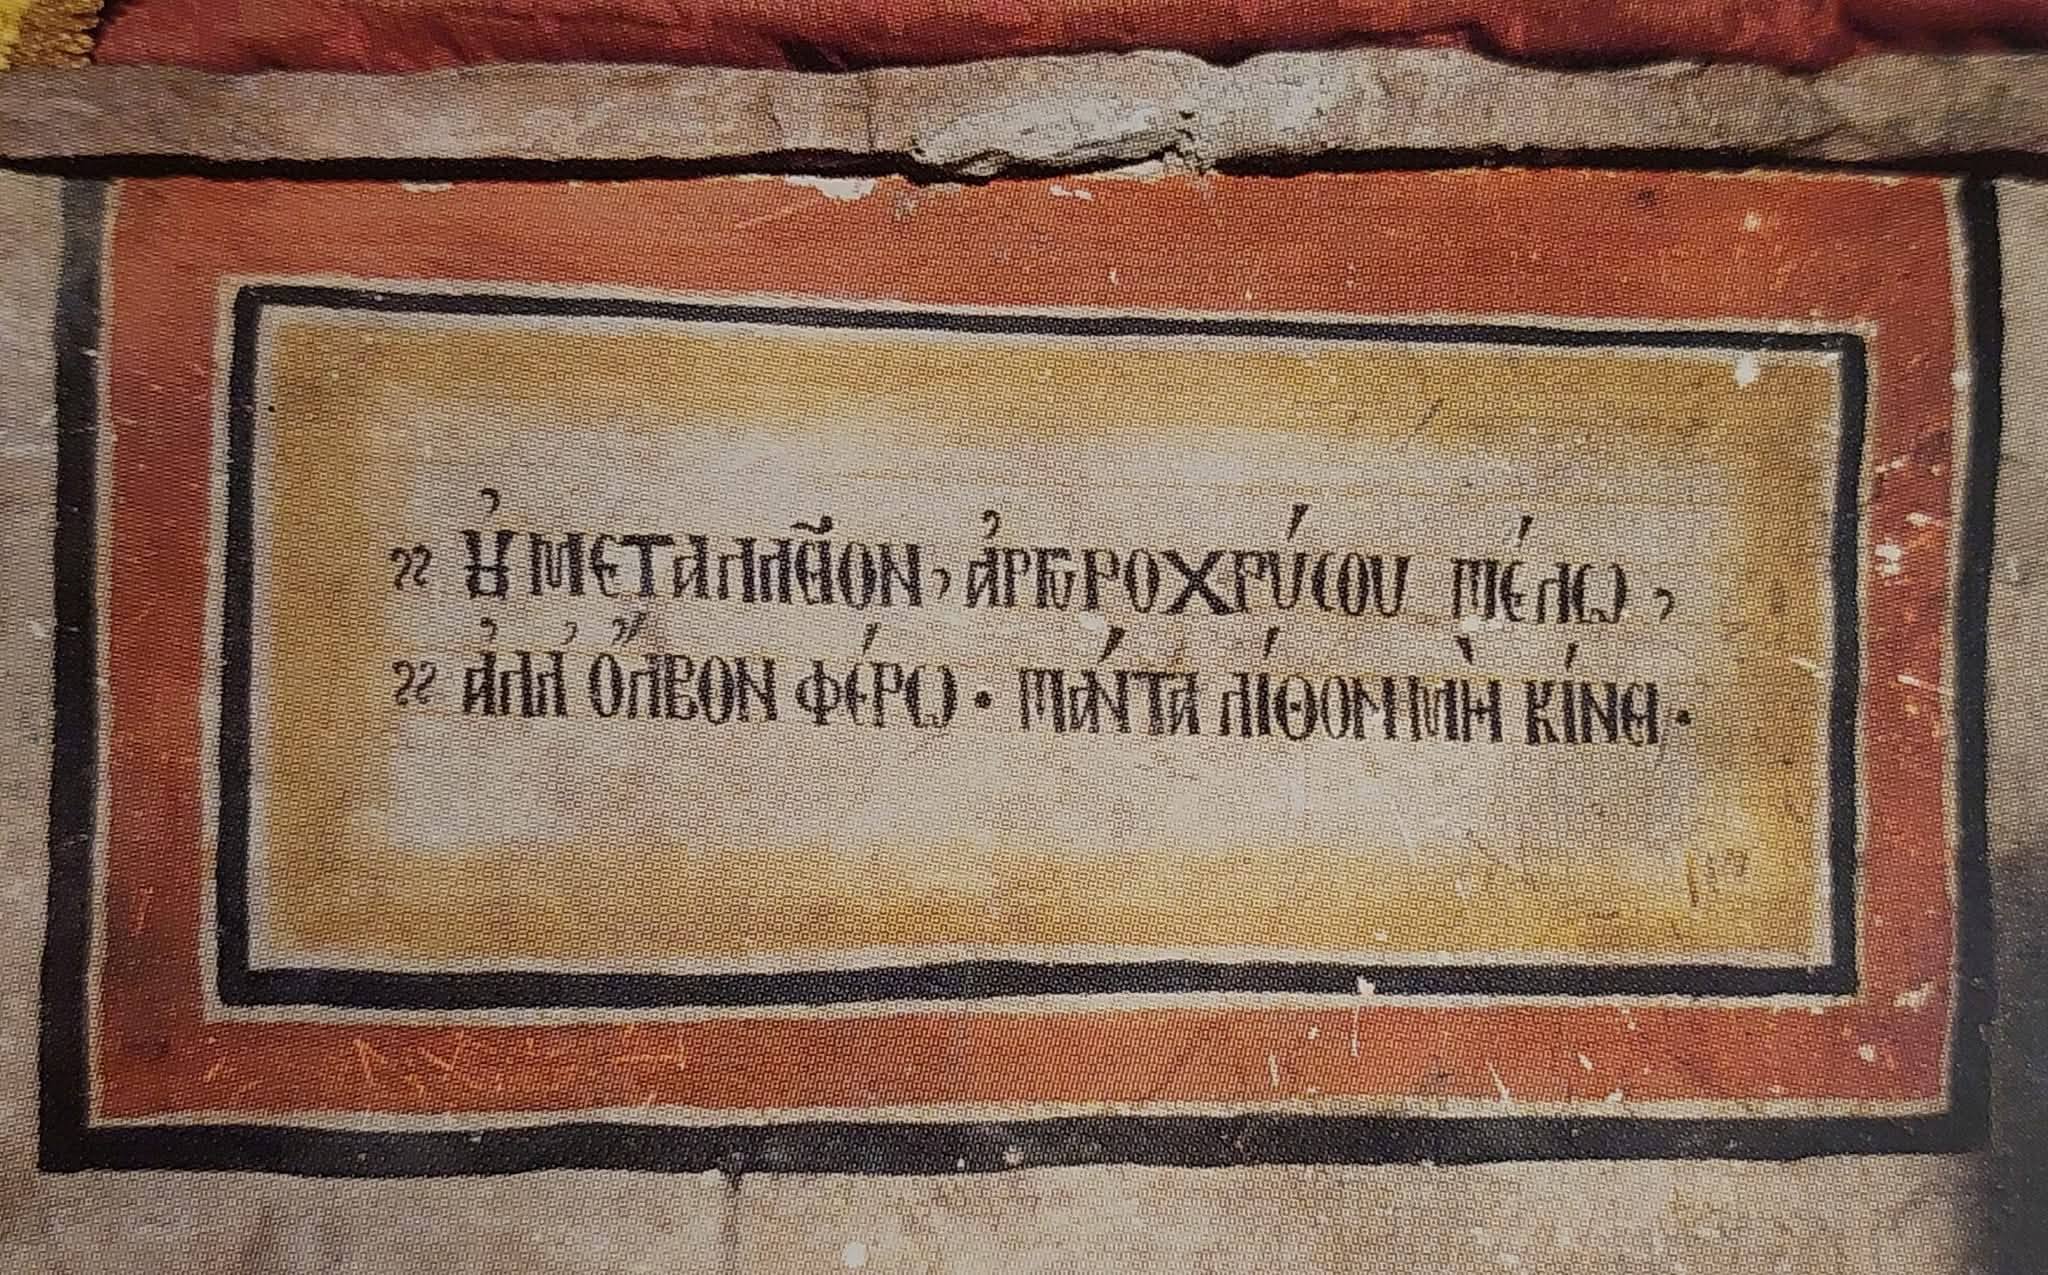 Ȣ̓ ΜΕΤΑΛΛΕῖΟΝ, ἈΡΓΥΡΟΧΡΎϹΟΥ ΠΈΛΩ,
ἈΛΛ᾿ ὌΛΒΟΝ ΦΈΡΩ· ΠΆΝΤΑ ΛΊΘΟΝ ΜῊ ΚΊΝΕΙ·